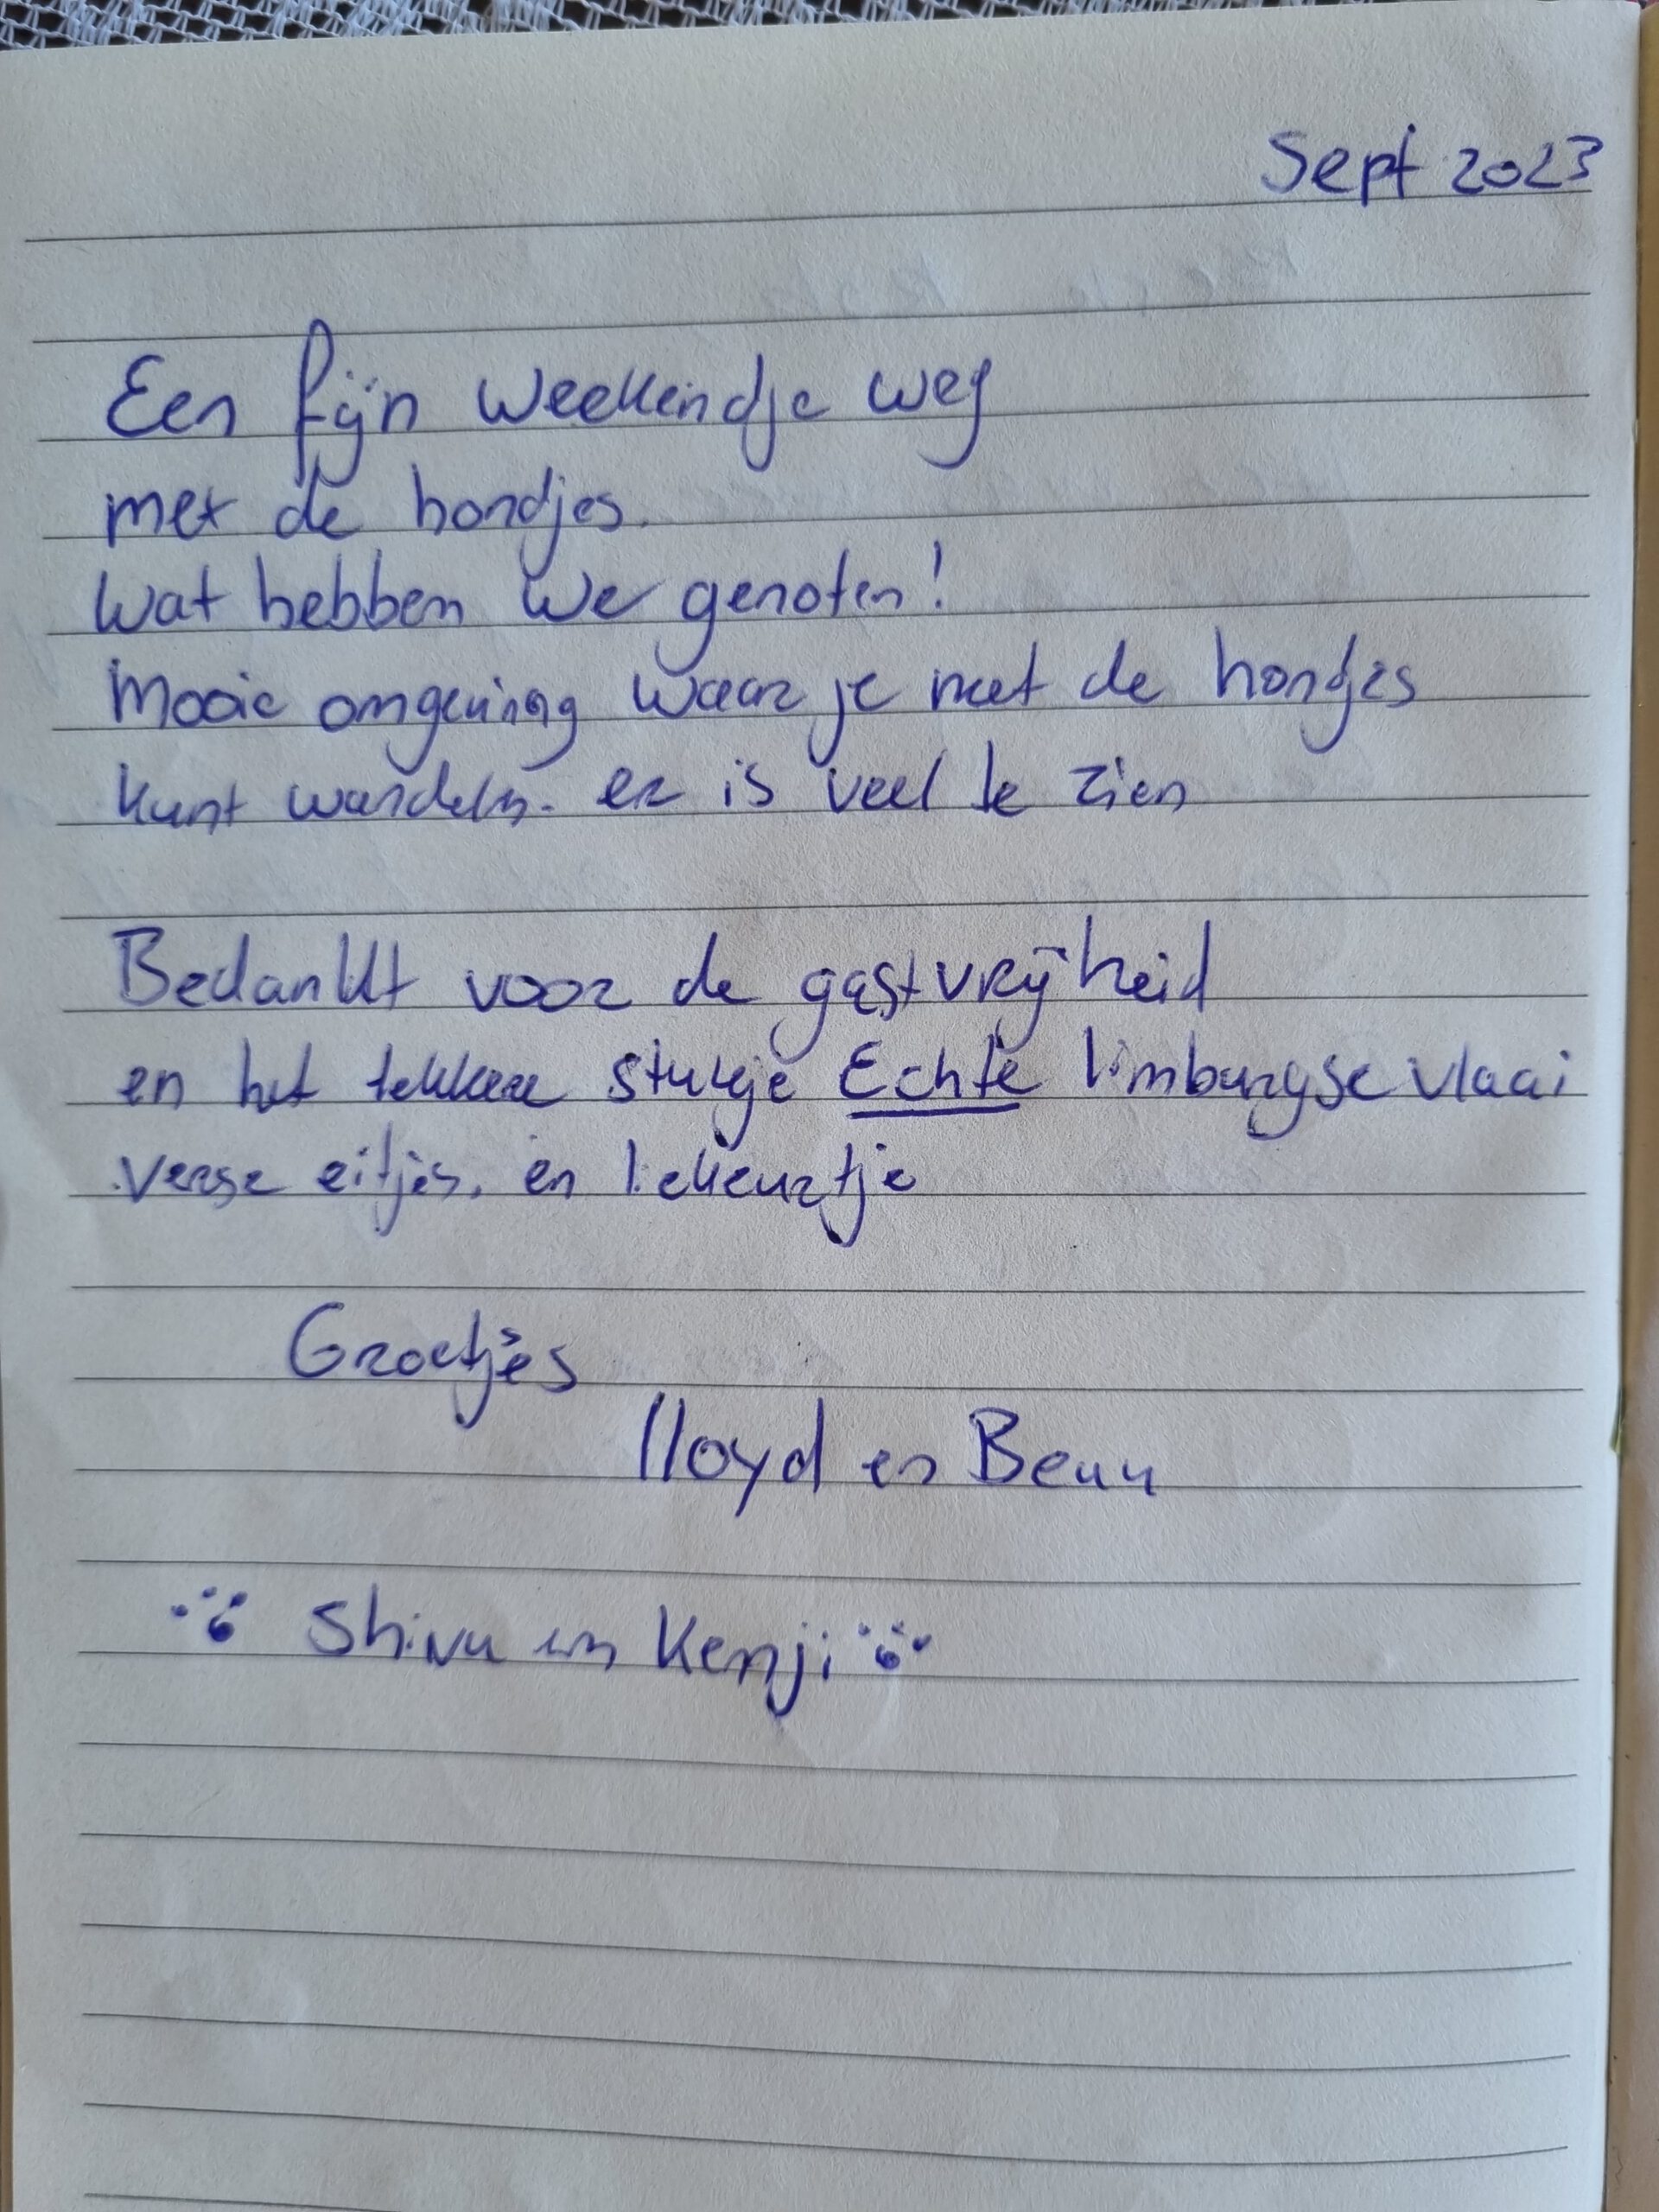 Sept 2023
Een fijn weekendje weg
met de hondjes.
Wat hebben we genoten!
Mooie omgeving waar je met de hondjes
kunt wandelen. er is veel te zien
Bedankt voor de gastvrijheid
en het lekkere stukje Echte limburgse vlaai
verse eitjes. en likeurtje
Groetjes
lloyd en
en Kenji